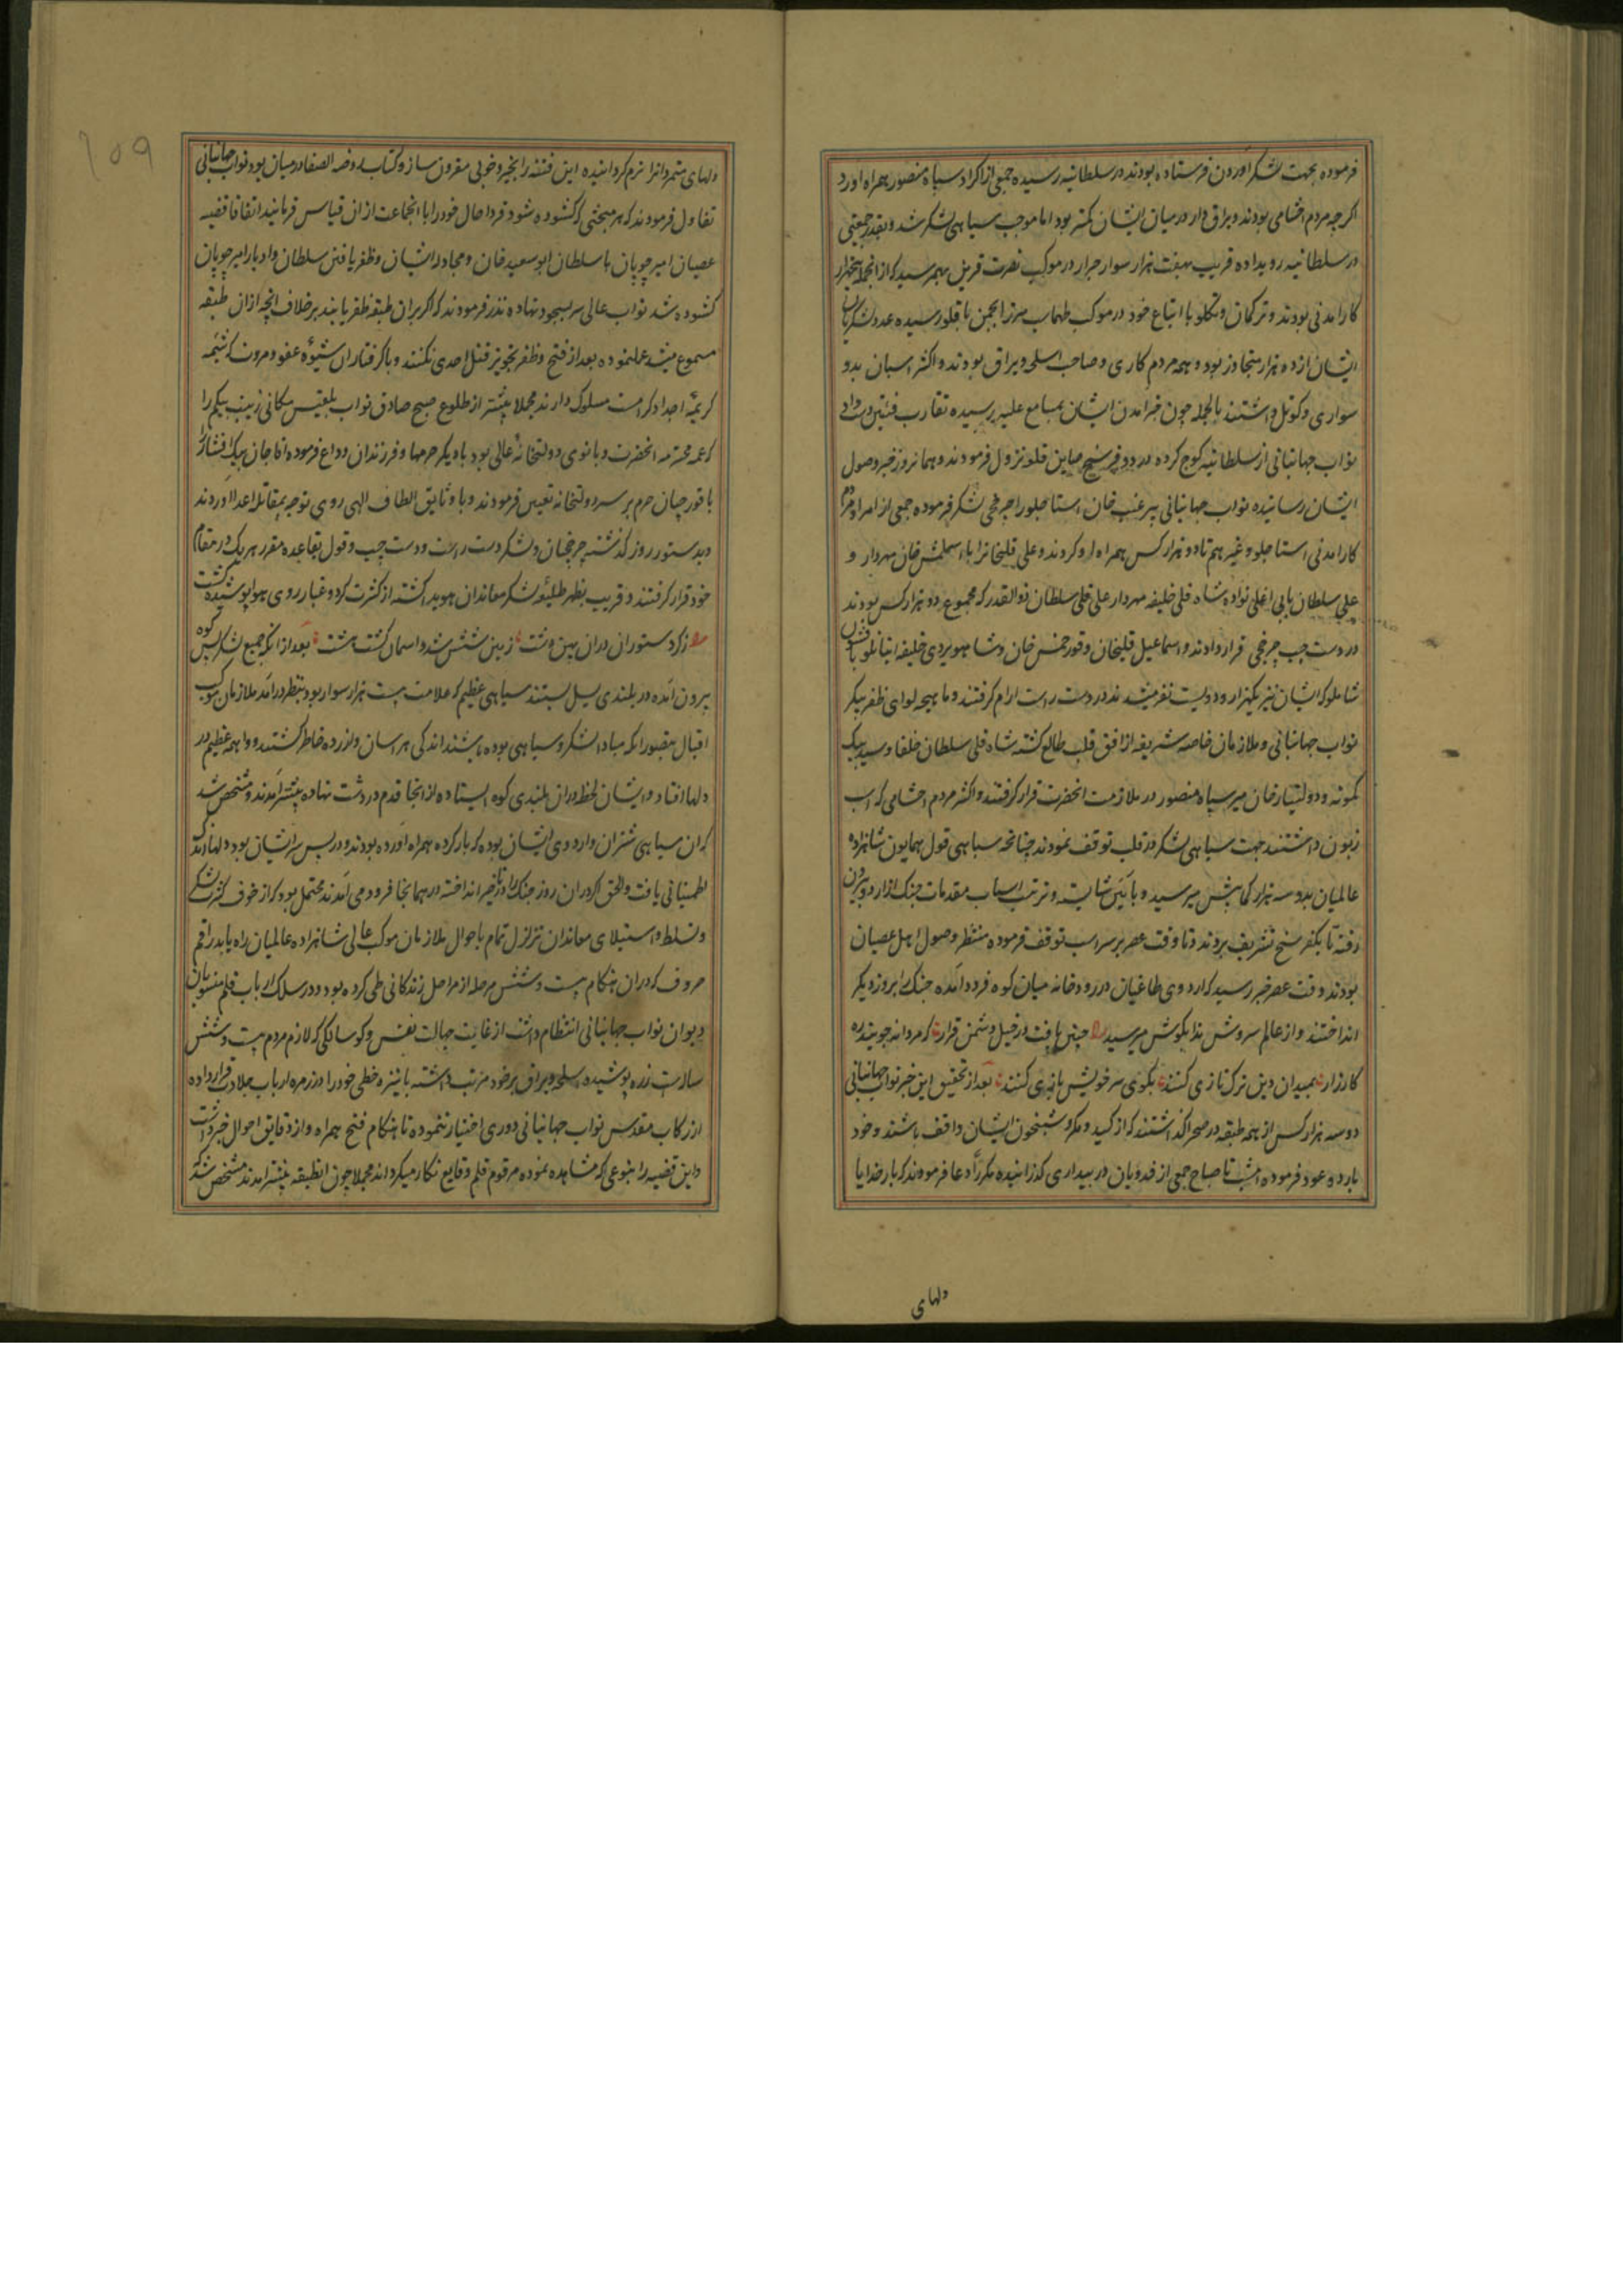 فرموده بجهت لشکر آوردن فرستاده بودند در سلطانیه رسیده جمعی از اکراد سیاه منصور همراه آورد
اکرچه مردم احشامی بودند و یراق دار در میان ایشان کمتر بود اما موجب سیاهی لشکر شد و بقدر جمعیتی
در سلطانیه رویداده قریب بهفت هزار سوار جرار در موکب نصرت قرین بهم رسید که از انجمله پنجهزار
کارامدنی بودند و ترکمان و تکلو با اتباع خود در موکب طهماسب میرزا بچمن باقلو رسیده عدد لشکریان
ایشان از ده هزار متجاوز بود و همه مردم کاری و صاحب اسلحه و یراق بودند و اکثر اسبان بدو
سواری و کوتل داشتند بالجمله چون خبر آمدن ایشان بمسامع علیه رسیده تقارب فئتین دست داد
نواب جهانبانی از سلطانیه کوچ کرده در دو فرسخی صاین قلعه نزول فرمودند و همانروز خبر وصول
ایشان رسانیده نواب جهانبانی پیر غیب خان استاجلو را چرخچی لشکر فرموده جمعی از امرا و مردم
کارامدنی استاجلو و غیرهم تا دو هزار کس همراه او کردند و علی قلیخانرا با اسلمش خان مهردار و
علی سلطان بابی اغلی نواده شاه قلی خلیفه مهردار علی قلی سلطان ذوالقدر که مجموع دو هزار کس بودند
در دست چپ چرخچی قرار دادند و اسماعیل قلیخان و قورخمس خان و شاهویردی خلیفه اینانلو با قشون
شاملو که ایشان نیز یکهزار و دویست نفر میشدند در دست راست آرام کرفتند و ماهیچه لوای ظفر پیکر
نواب جهانبانی و ملازمان خاصه شریفه از افق قلب طالع کشته شاه قلی سلطان خلفا و سید بیک
کمونه و دولتیار خان میر سیاه منصور در ملازمت انحضرت قرار کرفتند و اکثر مردم احشامی که اسب
زبون داشتند جهت سیاهی لشکر در قلب توقف نمودند چنانچه سیاهی قول همایون شاهزاده
عالمیان بدو سه هزار کمابیش میرسید و بآیین شایسته و ترتیب اسباب مقدمات جنک از اردو بیرون
رفته تا یکفرسخ تشریف بردند و تا وقت عصر بر سر اسب توقف فرموده منتظر وصول اهل عصیان
بودند وقت عصر خبر رسید که اردوی طاغیان در رودخانه میان کوه فرود آمده جنک را بروز دیکر
انداختند و از عالم سروش ندا بکوش میرسید چنین یافت در خیل دشمن قرار که مردانه جوینده
کارزار بمیدان دین ترک تازی کنند بکوی سر خویش بازی کنند بعد از تحقیق این خبر نواب جهانبانی
دو سه هزار کس از همه طبقه در صحرا کذاشتند که از کید و مکر و شبیخون ایشان واقف باشند و خود
باردو عود فرموده امشب تا صباح جمعی از فدویان در بیداری کذرانیده مکررا دعا فرمودند که بار خدایا
دلهای
۱۵۹
دلهای متمردانرا نرم کردانیده این فتنه را بخیر و خوبی مقرون ساز و کتاب روضه الصفا در میان بود نواب جهانبانی
تفاول فرمودند که هر مبحثی که کشوده شود فردا حال خود را با انجماعت از ان قیاس فرمایند اتفاقا قضیه
عصیان امیر چوپان با سلطان ابو سعید خان و مجادله ایشان و ظفر یافتن سلطان و ادبار امیر چوپان
کشوده شد نواب عالی سر بسجود نهاده نذر فرمودند که اکر بران طبقه ظفر یابند بر خلاف انچه ازان طبقه
مسموع میشد عمل نموده بعد از فتح و ظفر تجویز قتل احدی نکنند و با کرفتاران شیوه عفو و مروت که شیمه
کریمه اجداد کرامست مسلوک دارند مجملا پیشتر از طلوع صبح صادق نواب بلقیس مکانی زینب بیکم را
که عمه محترمه انحضرت و بانوی دولتخانه عالی بود با دیکر حرمها و فرزندان وداع فرموده اقا جان بیک افشار را
با قورچیان حرم بر سر دولتخانه تعیین فرمودند و با وثایق الطاف الهی روی توجه بمقاتله اعدا آوردند
و بدستور روز کذشته چرخچیان و لشکر دست راست و دست چپ و قول بقاعده مقرر هر یک در مقام
خود قرار کرفتند و قریب بظهر طلیعه لشکر معاندان هویدا کشته از کثرت کرد و غبار روی هوا پوشیده کشت
ز کرد ستوران دران پهن دشت زمین شش شد و آسمان کشت هشت بعد از انکه جمیع لشکر از پس کوه
بیرون آمده در بلندی یسل بستند سیاهی عظیم که علامت بیست هزار سوار بود بنظر در آمد ملازمان موکب
اقبال بتصور انکه مبادا لشکر و سیاهی بوده باشند اندکی هراسان و ازرده خاطر کشتند و واهمه عظیم در
دلها افتاد و ایشان لحظه دران بلندی کوه ایستاده از انجا قدم در دشت نهاده پیشتر آمدند و مشخص شد
که ان سیاهی شتران و اردوی ایشان بوده که بار کرده همراه آورده بودند و در پس سر ایشان بود دلها اندک
اطمینانی یافت والحق اکر دران روز جنک را در تاخیر انداخته در همانجا فرود می آمدند محتمل بود که از خوف کثرت لشکر
و تسلط و استیلای معاندان تزلزل تمام باحوال ملازمان موکب عالی شاهزاده عالمیان راه یابد راقم
حروف که دران هنکام بیست و شش مرحله از مراحل زندکانی طی کرده بود و در سلک ارباب قلم منسوبان
دیوان نواب جهانبانی انتظام داشت از غایت جهالت نفس و کوسالکی که لازم مردم بیست و شش
سالست زره پوشیده اسلحه و یراق بر خود مرتب داشته با نیزه خطی خود را در زمره ارباب جلادت قرار داده
از رکاب مقدس نواب جهانبانی دوری اختیار ننموده تا هنکام فتح همراه و از دقایق احوال خبر داشت
و این قضیه را بنوعی که مشاهده نموده مرقوم قلم وقایع نکار میکرداند مجملا چون انطبقه پیشتر آمدند مشخص شد که